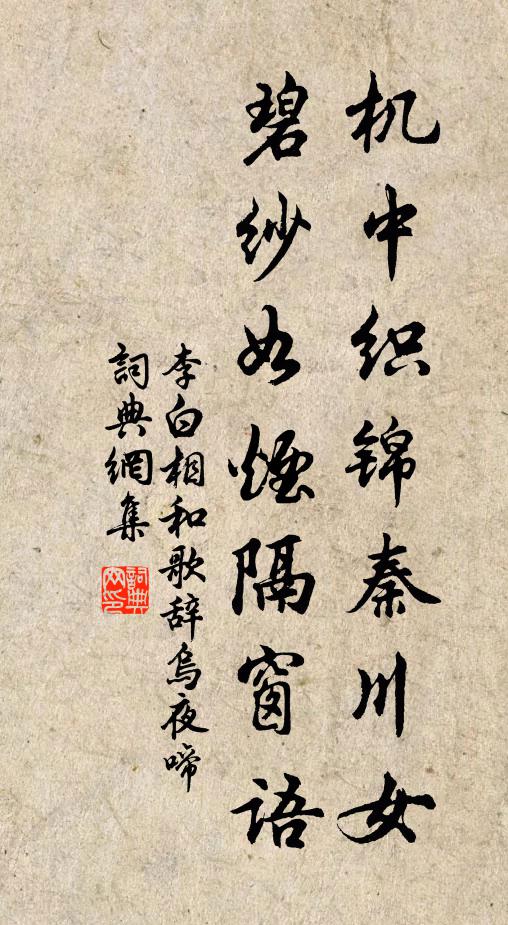 机中织锦秦川女
碧纱如煙隔窗语
李白相和歌辞烏夜啼
詞典網集
詞典
网印